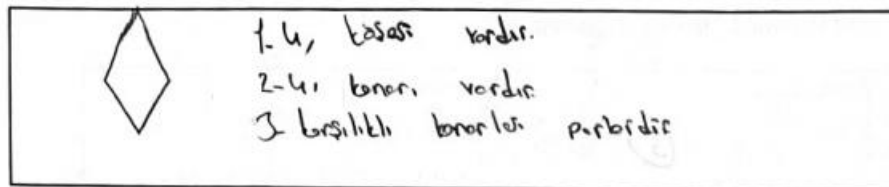 1-4, köşesi vardır.
2-4, kenarı vardır.
3- karşılıklı kenarları